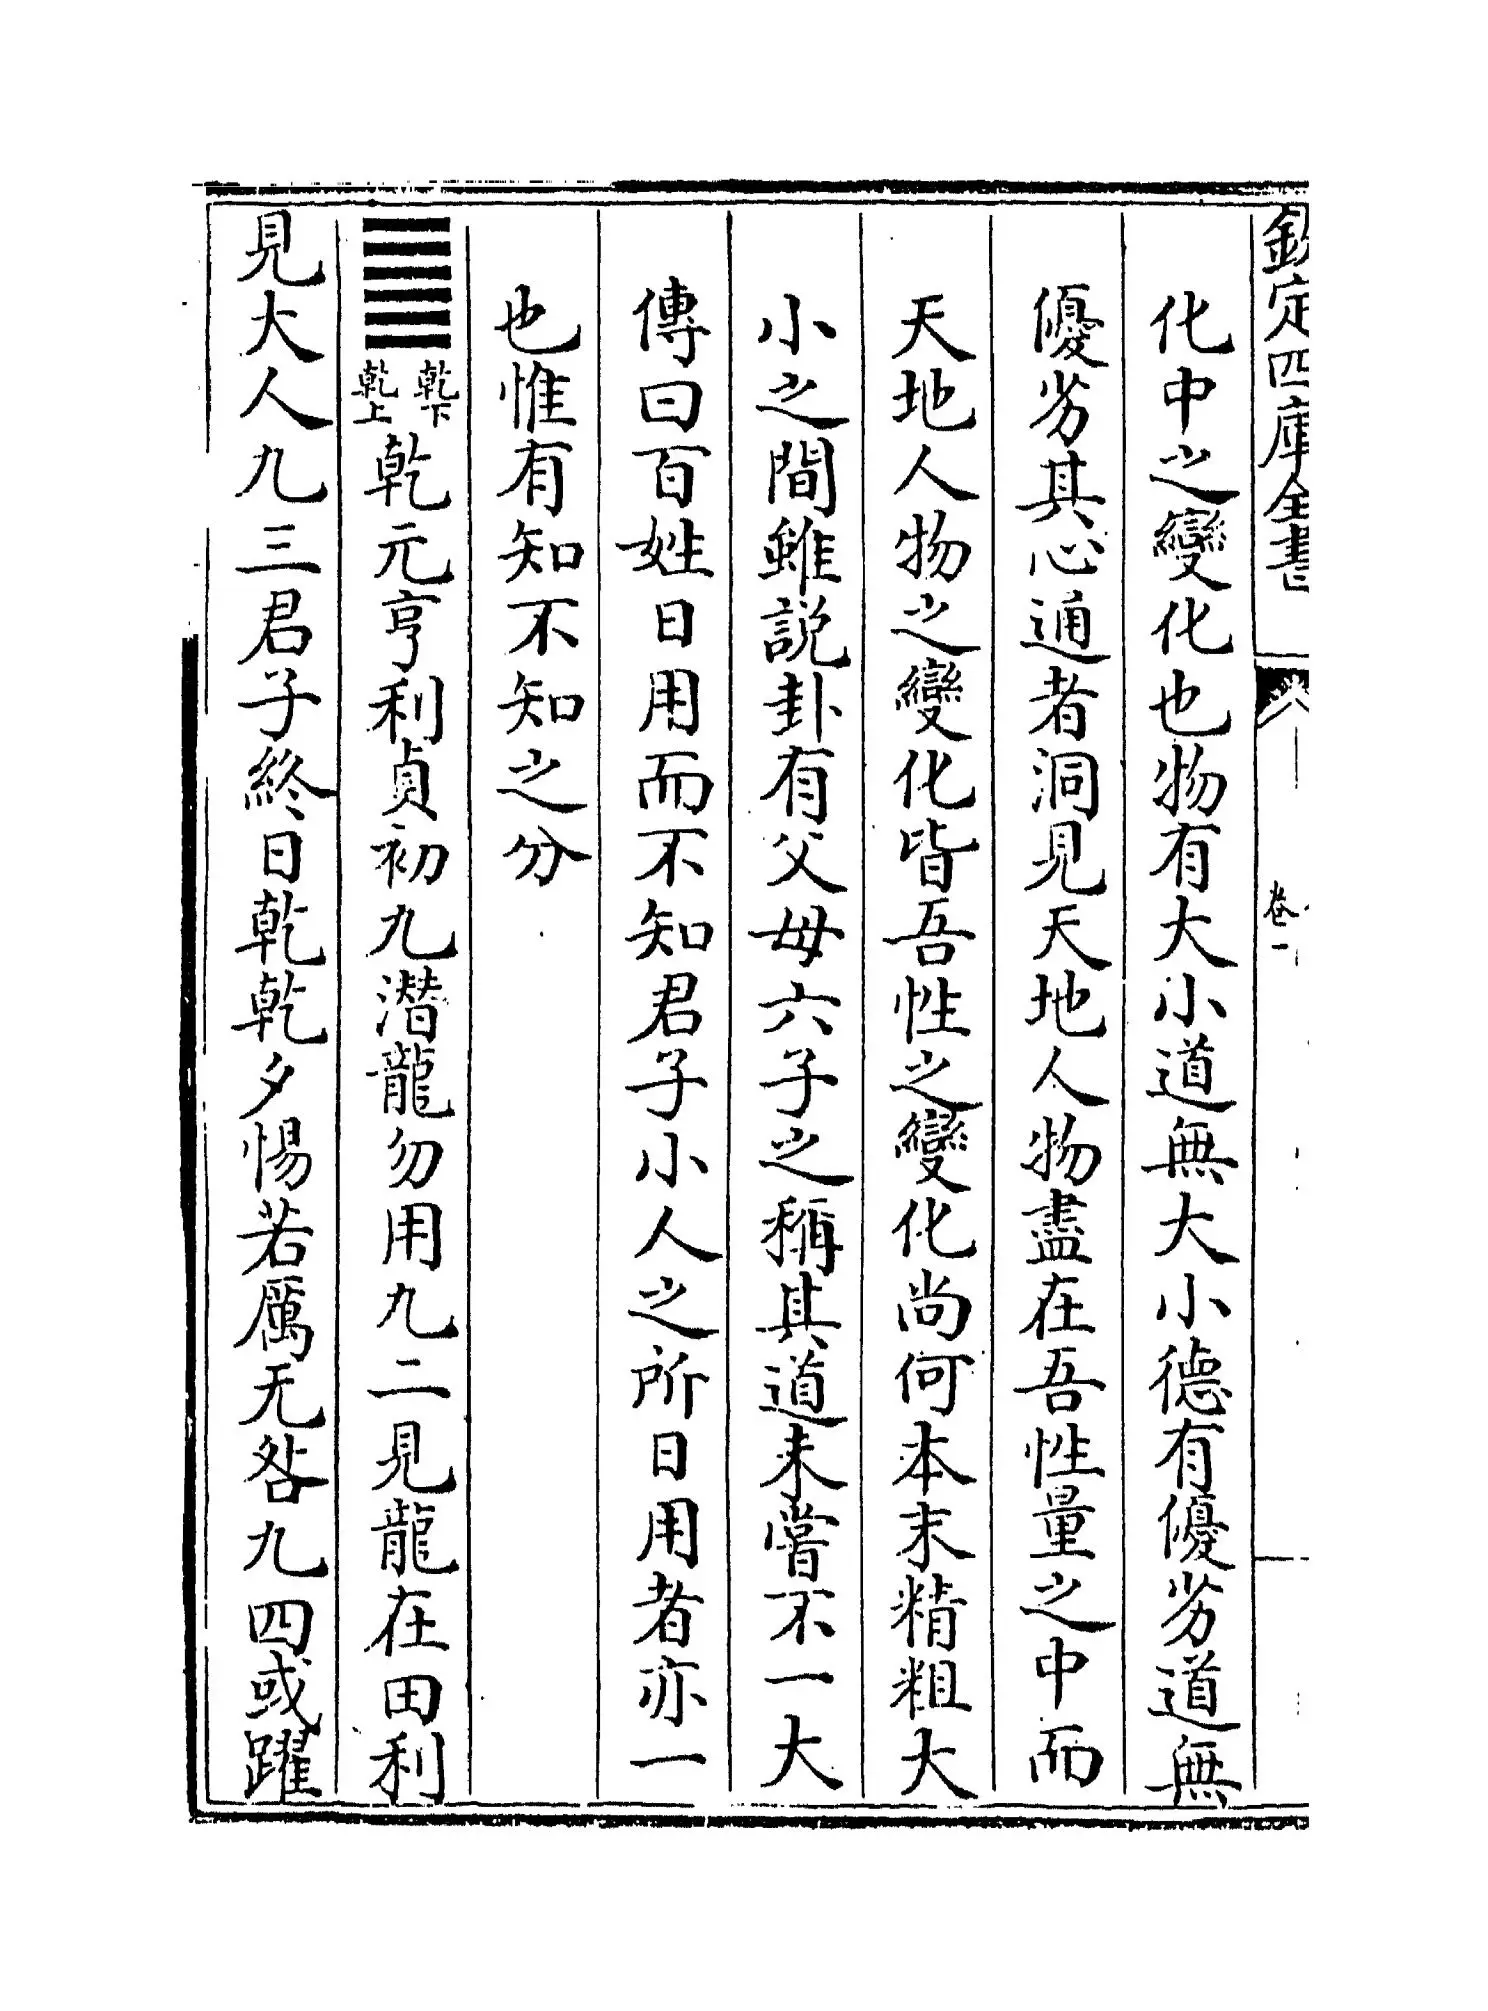 欽定四庫全書
卷一
化中之變化也物有大小道無大小德有優劣道無
優劣其心通者洞見天地人物盡在吾性量之中而
天地人物之變化皆吾性之變化尚何本末精粗大
小之間雖説卦有父母六子之稱其道未嘗不一大
傳曰百姓日用而不知君子小人之所日用者亦一
也惟有知不知之分
乾下乾上乾元亨利貞初九潛龍勿用九二見龍在田利
見大人九三君子終日乾乾夕惕若厲无咎九四或躍